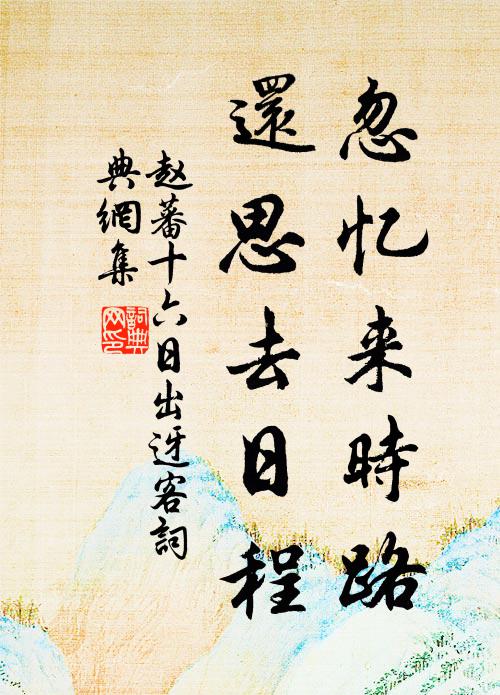 忽忆来時路
還思去日程
赵蕃十六日出迓客詞
典網集
詞典
网印